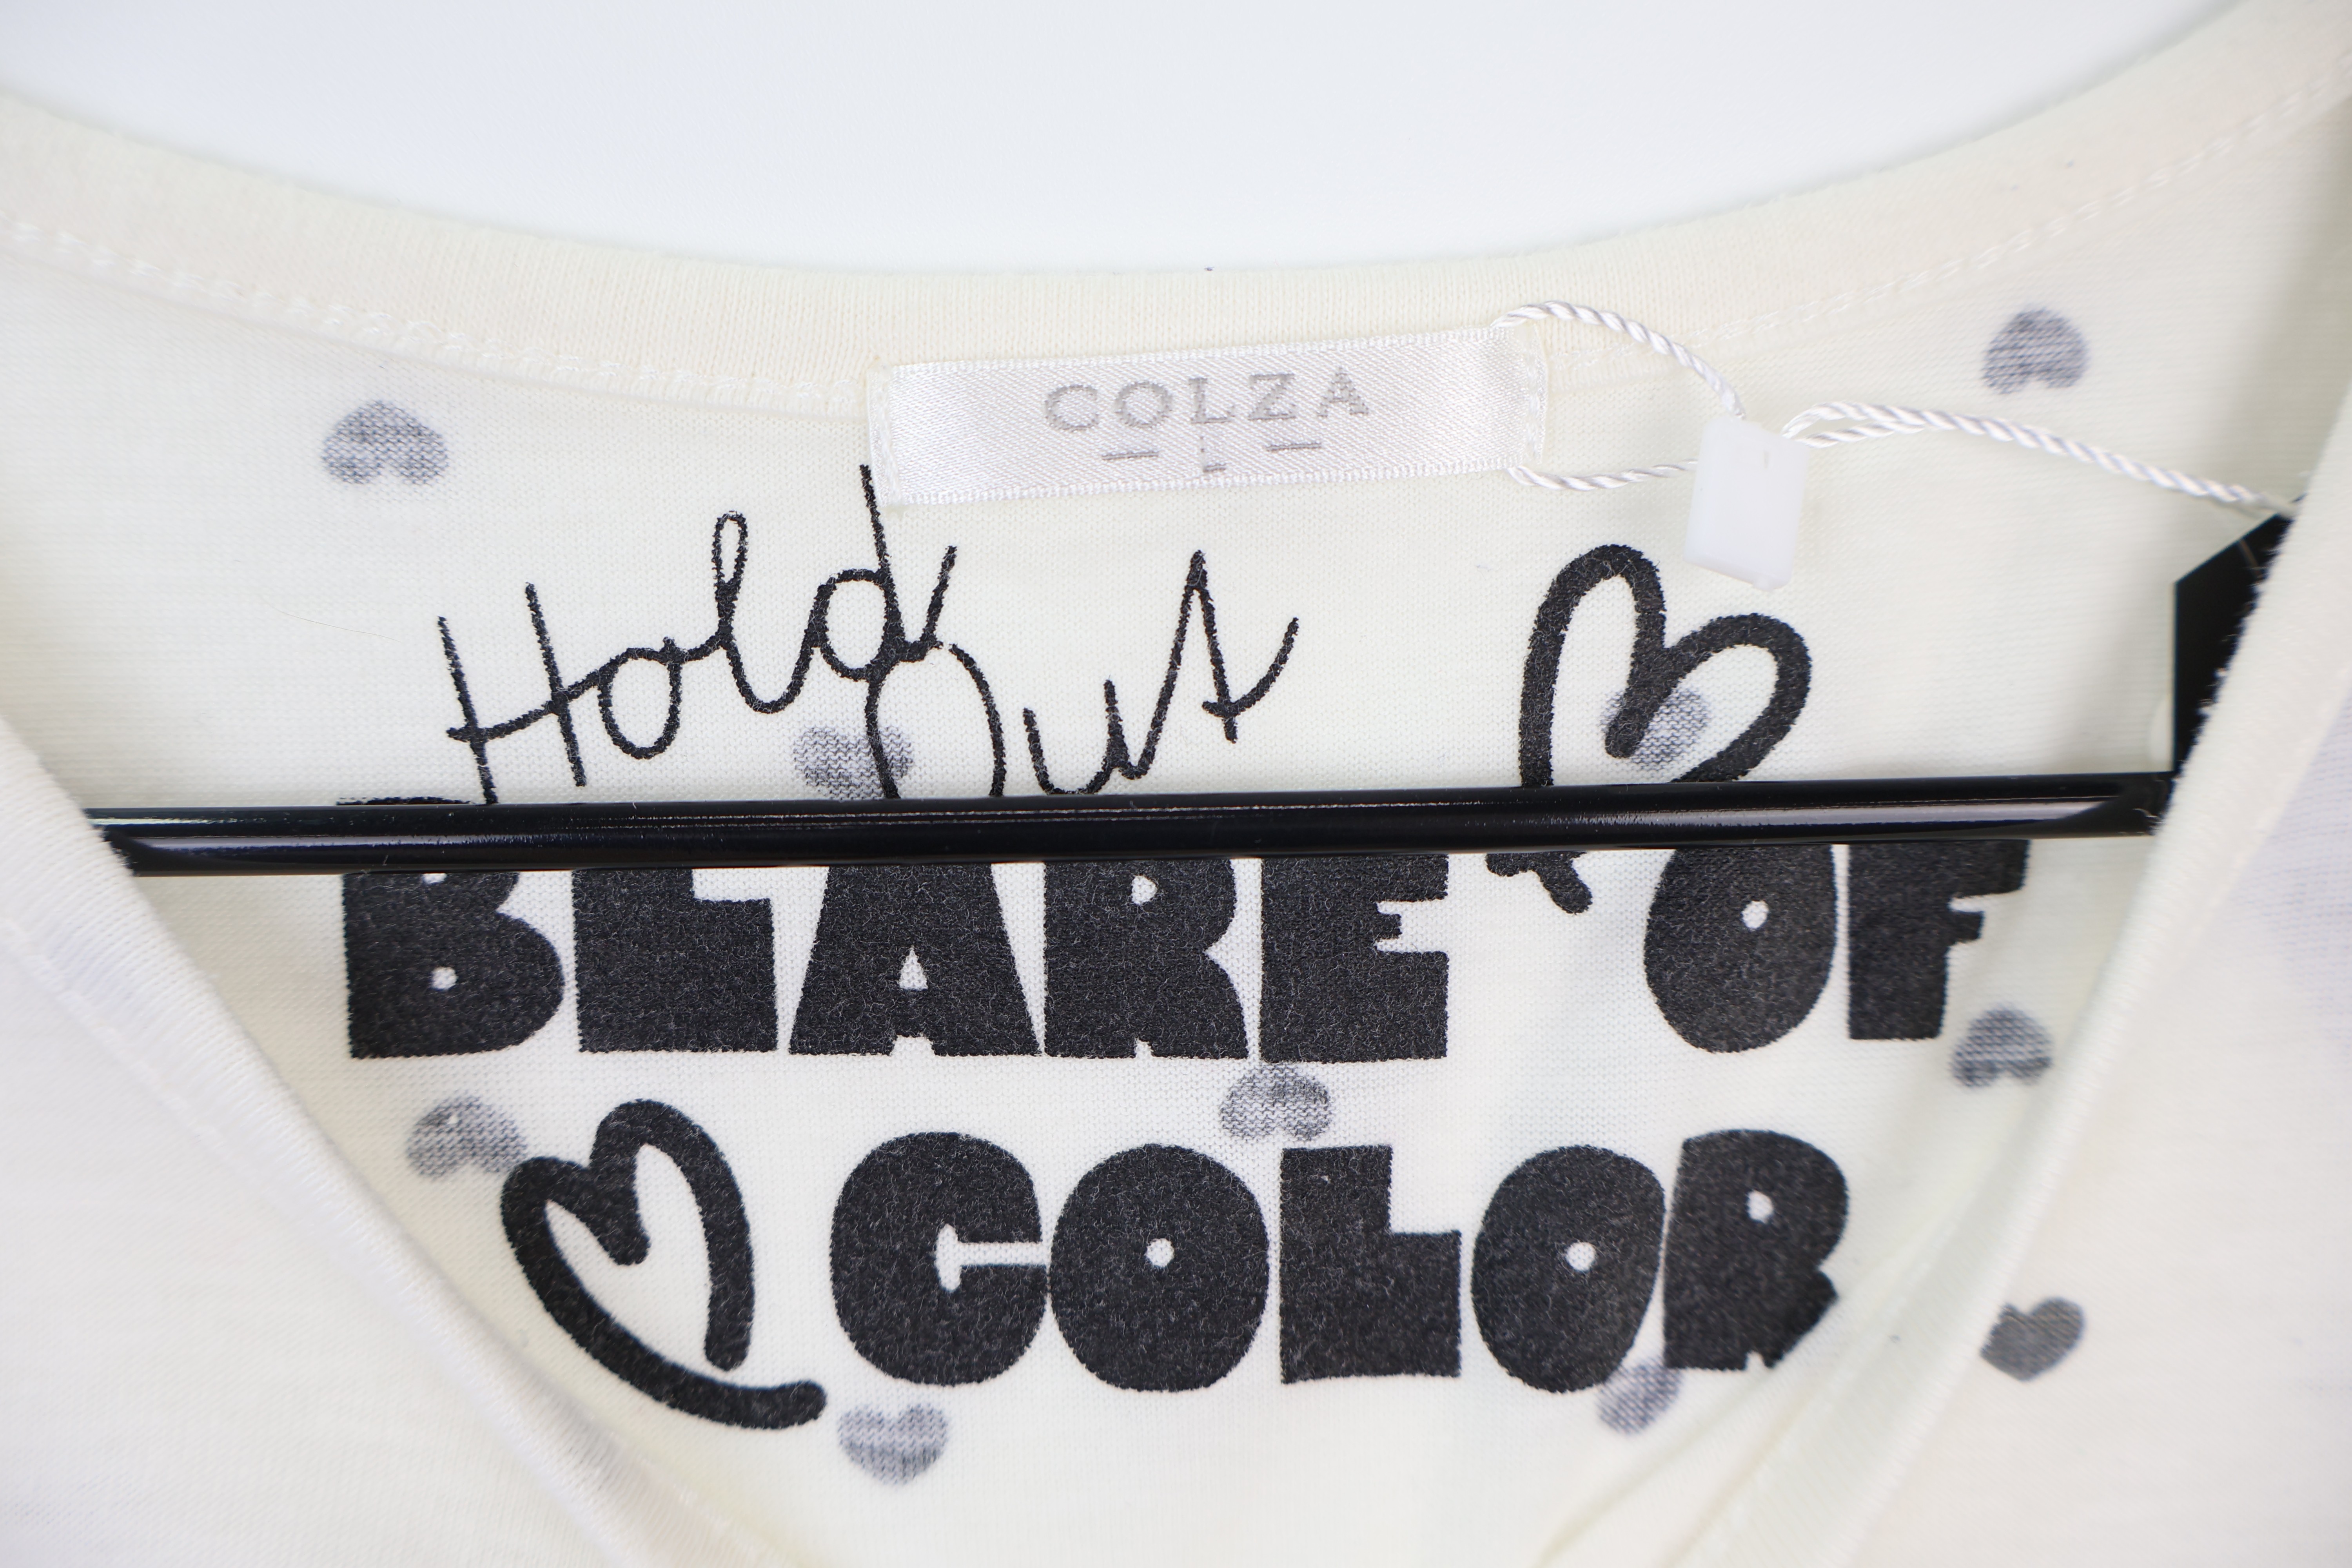 COLZA
- L -
Hold
Out
BLARE OF
COLOR